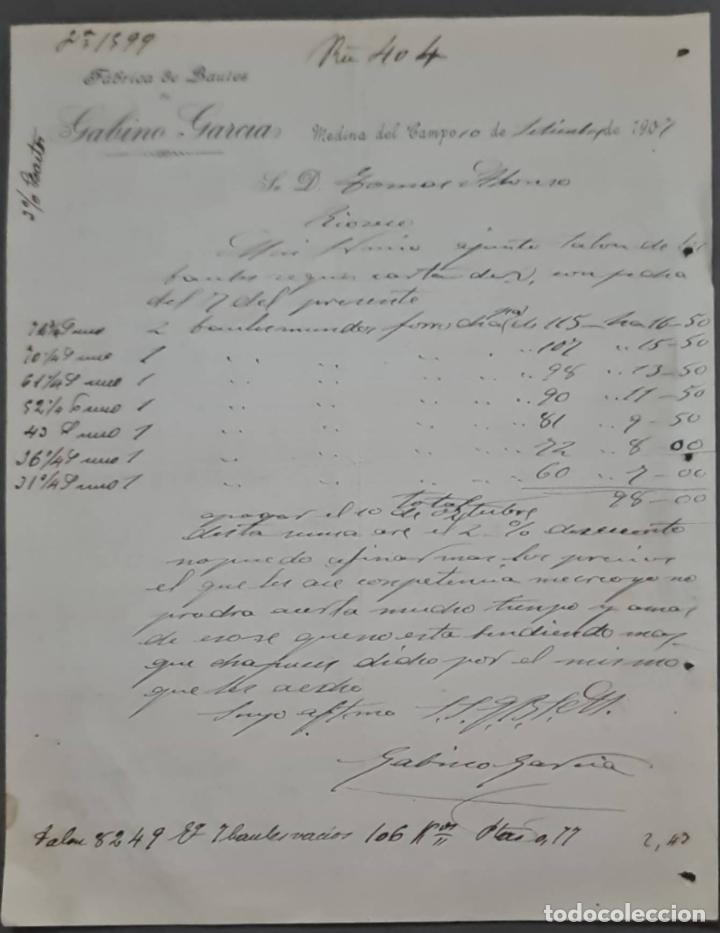 1599
Ru 404
Fábrica de Baules
de
Gabino García
Medina del Campo 10 de Setiembre de 1907
3% Gastos
Sr D. Tomas Alonso
Rioseco
Mui Sr mio ajunto talon de los
baules segun carta de V, con fecha
del 7 del presente
2 baules mundos forro de 115 16-50
70 1/4 P uno 1 " " " " " 107 " 15-50
61 1/4 P uno 1 " " " " " 98 " 13-50
52 1/4 P uno 1 " " " " 90 " 11-50
43 P uno 1 " " " " 81 " 9-50
36 1/4 P uno 1 " " " " 72 " 8 00
31 1/4 P uno 1 " " " " 60 " 7-00
total 98-00
apagar el 10 de Octubre
desta suma are el 2 % descuento
no puedo afinar mas los precios
el que les ace competencia me creo yo no
podra acerla mucho tiempo y amas
de eso se que no esta bendiendo mas
que chapuces dicho por el mismo
que les a echo
Suyo aftmo S.S.Q.B.S.M.
Gabino García
Talon 8249 7 baules vacios 106 Kos Ptas 9,77 2,43
todocoleccion